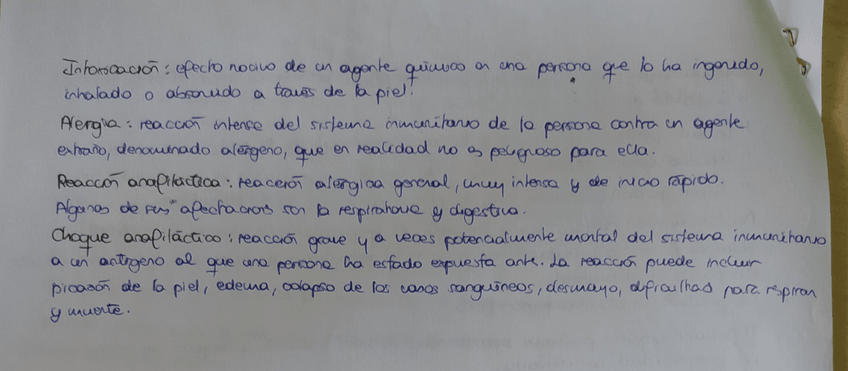 Intoxicación: efecto nocivo de un agente químico en una persona que lo ha ingerido,
inhalado o absorvido a través de la piel.
Alergia: reacción intensa del sistema inmunitario de la persona contra un agente
extraño, denominado alérgeno, que en realidad no es peligroso para ella.
Reacción anafiláctica: reacción alérgica general, muy intensa y de inicio rápido.
Algunas de sus afectaciones son la respiratoria y digestiva.
Choque anafiláctico: reacción grave y a veces potencialmente mortal del sistema inmunitario
a un antígeno al que una persona ha estado expuesta ante. La reacción puede incluir
picazón de la piel, edema, colapso de los vasos sanguíneos, desmayo, dificultad para respirar
y muerte.